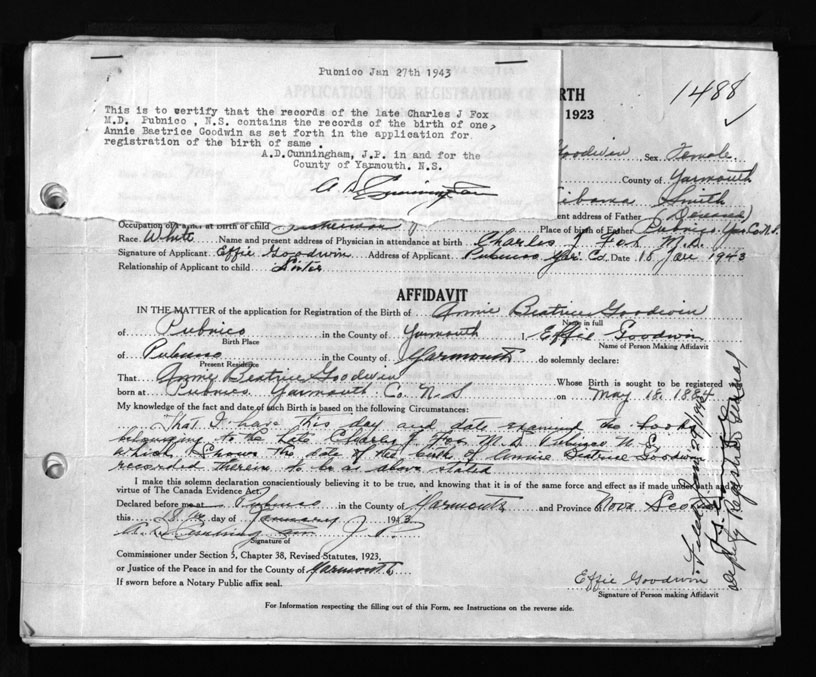 Pubnico Jan 27th 1943
This is to certify that the records of the late Charles J Fox
M.D. Pubnico , N.S. contains the records of the birth of one,
Annie Baetrice Goodwin as set forth in the application for
registration of the birth of same .
A.D.Cunningham, J.P. in and for the
County of Yarmouth. N.S.
A D Cunningham
RTH
1923
1488
Goodwin Sex Female.
County of Yarmouth
Smith
ent address of Father (Deceased)
Occupation of Father at birth of child Fisherman Place of birth of Father Pubnico Yar. Co N.S.
Race White Name and present address of Physician in attendance at birth Charles J Fox M.D.
Signature of Applicant Effie Goodwin Address of Applicant Pubnico Yar. Co. Date 18 Jan 1943
Relationship of Applicant to child Sister
AFFIDAVIT
IN THE MATTER of the application for Registration of the Birth of Annie Beatrice Goodwin
Name in full
of Pubnico in the County of Yarmouth I, Effie Goodwin
Birth Place Name of Person Making Affidavit
of Pubnico in the County of Yarmouth do solemnly declare:
Present Residence
That Annie Beatrice Goodwin Whose Birth is sought to be registered
born at Pubnico Yarmouth Co N S on May 18. 1884
My knowledge of the fact and date of such Birth is based on the following Circumstances:
That I have this day and date examined the books
belonging to the late Charles J. Fox M.D. Pubnico N.S.
which shows the date of the birth of Annie Beatrice Goodwin
recorded therein to be as above stated
I make this solemn declaration conscientiously believing it to be true, and knowing that it is of the same force and effect as if made under oath and
virtue of The Canada Evidence Act.
Declared before me at Pubnico in the County of Yarmouth and Province of Nova Scotia
this 18th day of January 1943
A. D. Cunningham J. P.
Signature of
Commissioner under Section 5, Chapter 38, Revised Statutes, 1923,
or Justice of the Peace in and for the County of Yarmouth
If sworn before a Notary Public affix seal.
Effie Goodwin
Signature of Person making Affidavit
For Information respecting the filling out of this Form, see Instructions on the reverse side.
Deputy Registrar General